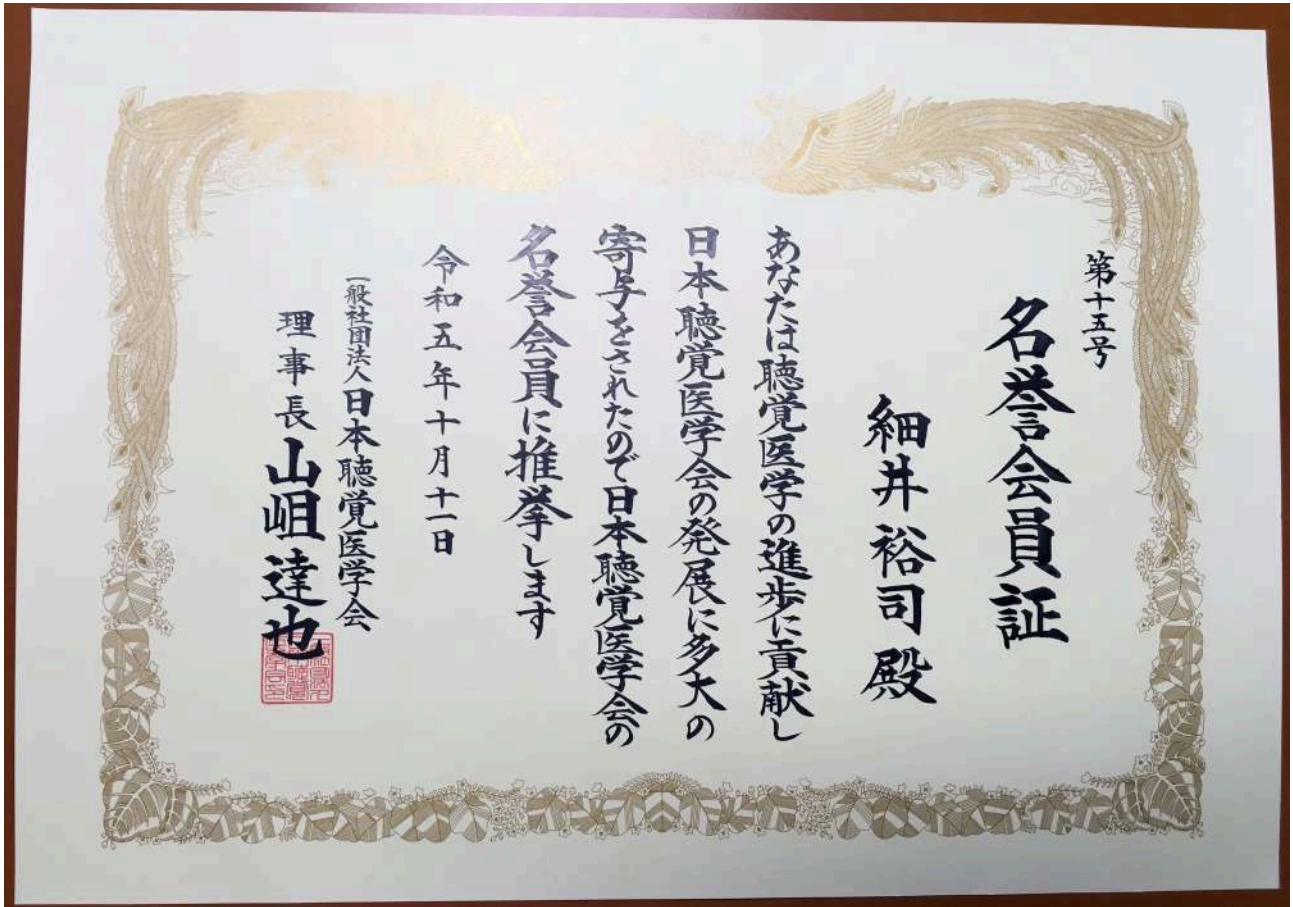 第十五号
名誉会員証
細井裕司殿
あなたは聴覚医学の進歩に貢献し
日本聴覚医学会の発展に多大の
寄与をされたので日本聴覚医学会の
名誉会員に推挙します
令和五年十月十一日
一般社団法人日本聴覚医学会
理事長山岨達也